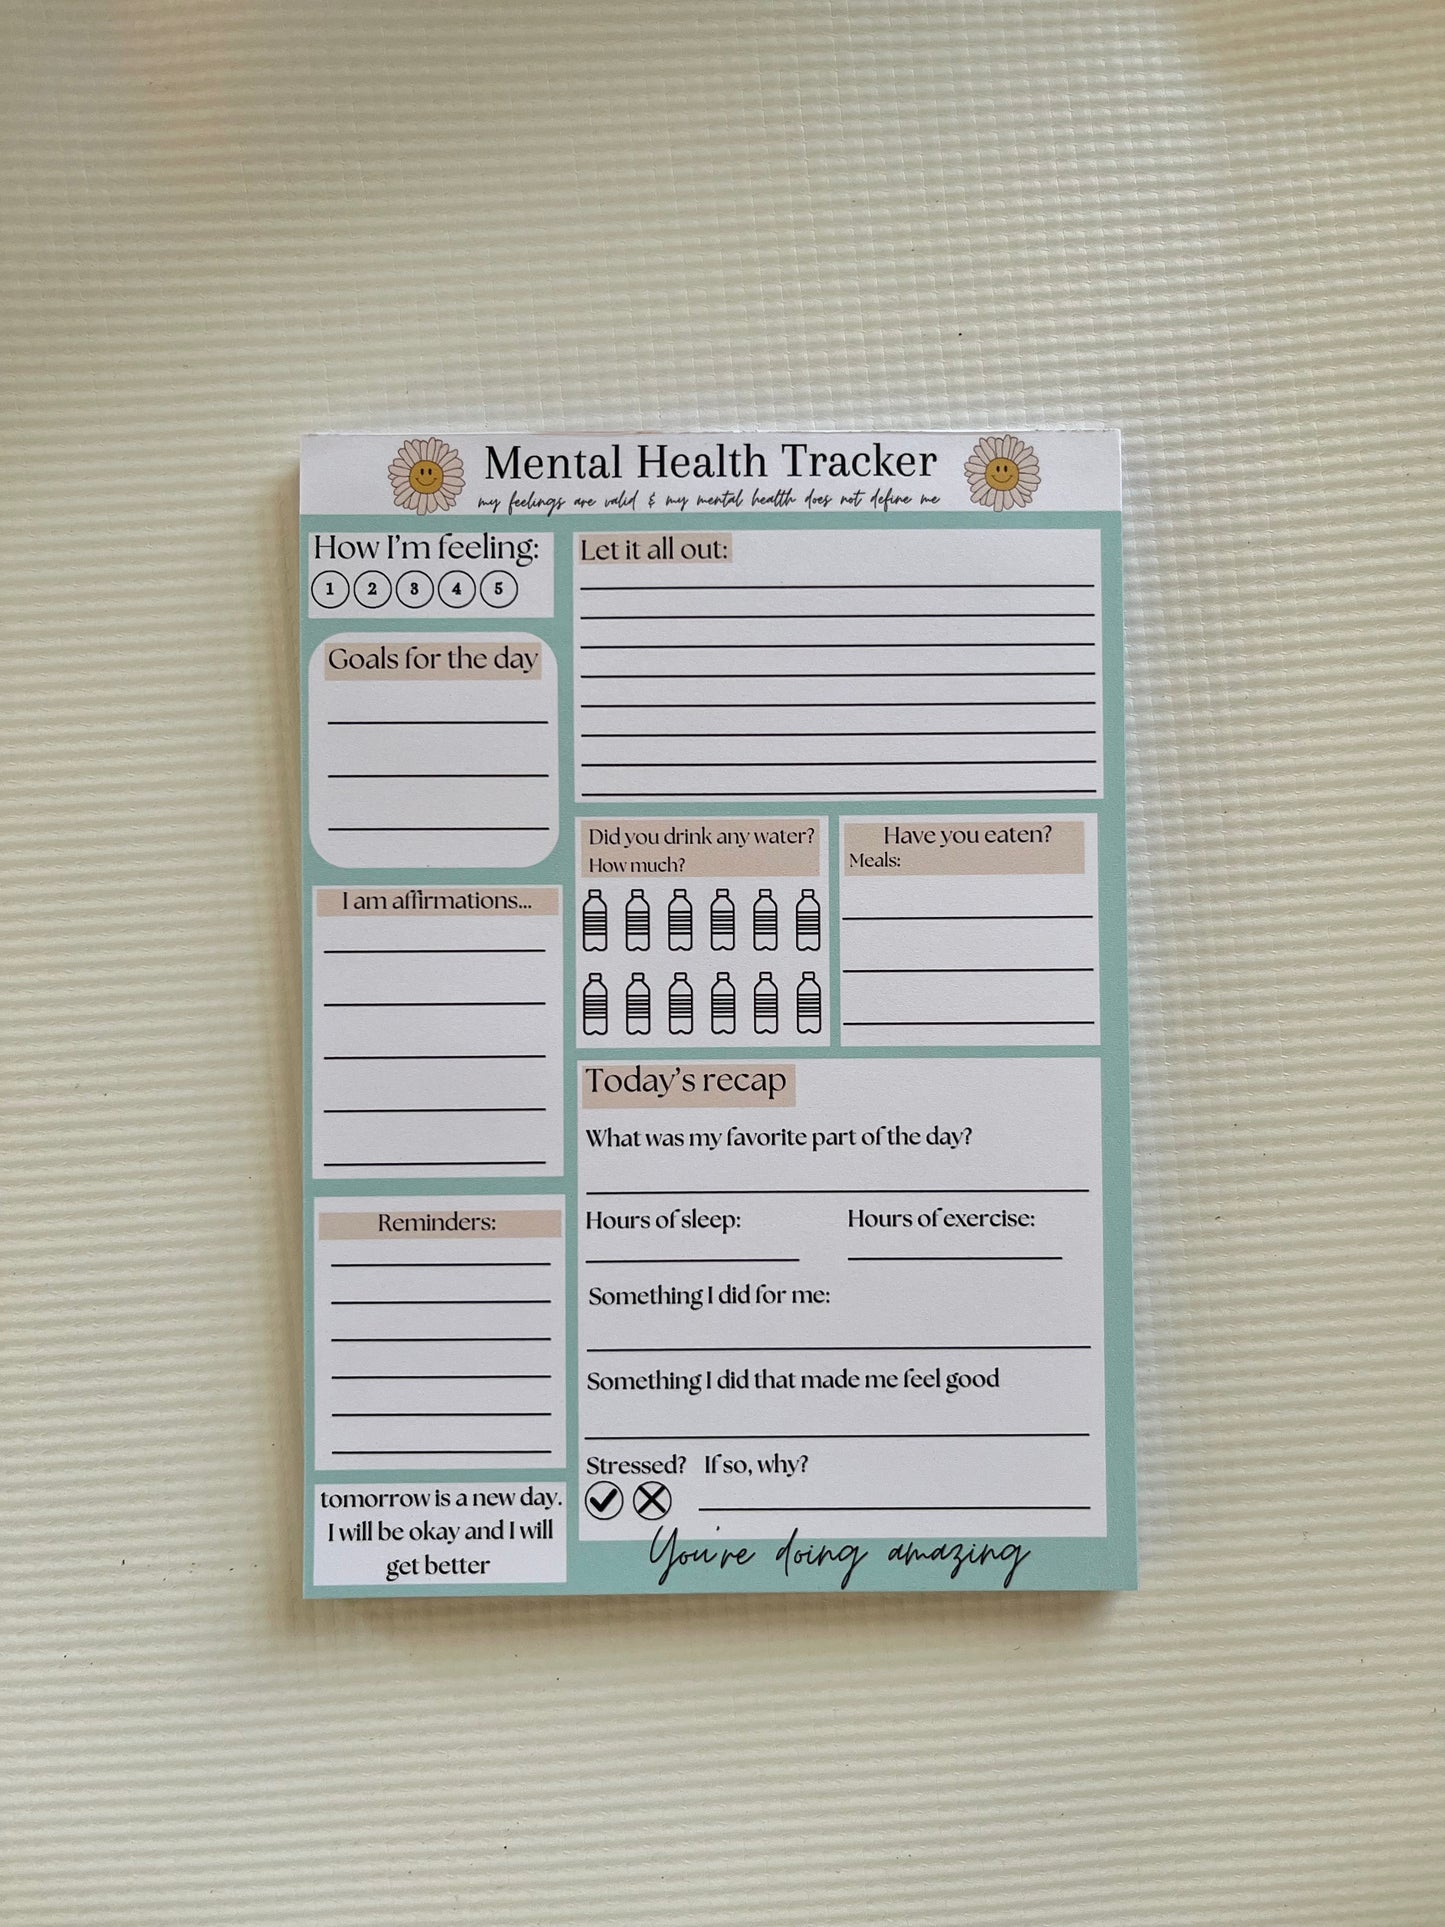 Mental Health Tracker
my feelings are valid & my mental health does not define me
How I'm feeling:
1 2 3 4 5
Goals for the day
I am affirmations...
Reminders:
tomorrow is a new day.
I will be okay and I will
get better
Let it all out:
Did you drink any water?
How much?
Have you eaten?
Meals:
Today's recap
What was my favorite part of the day?
Hours of sleep: Hours of exercise:
Something I did for me:
Something I did that made me feel good
Stressed? If so, why?
You're doing amazing